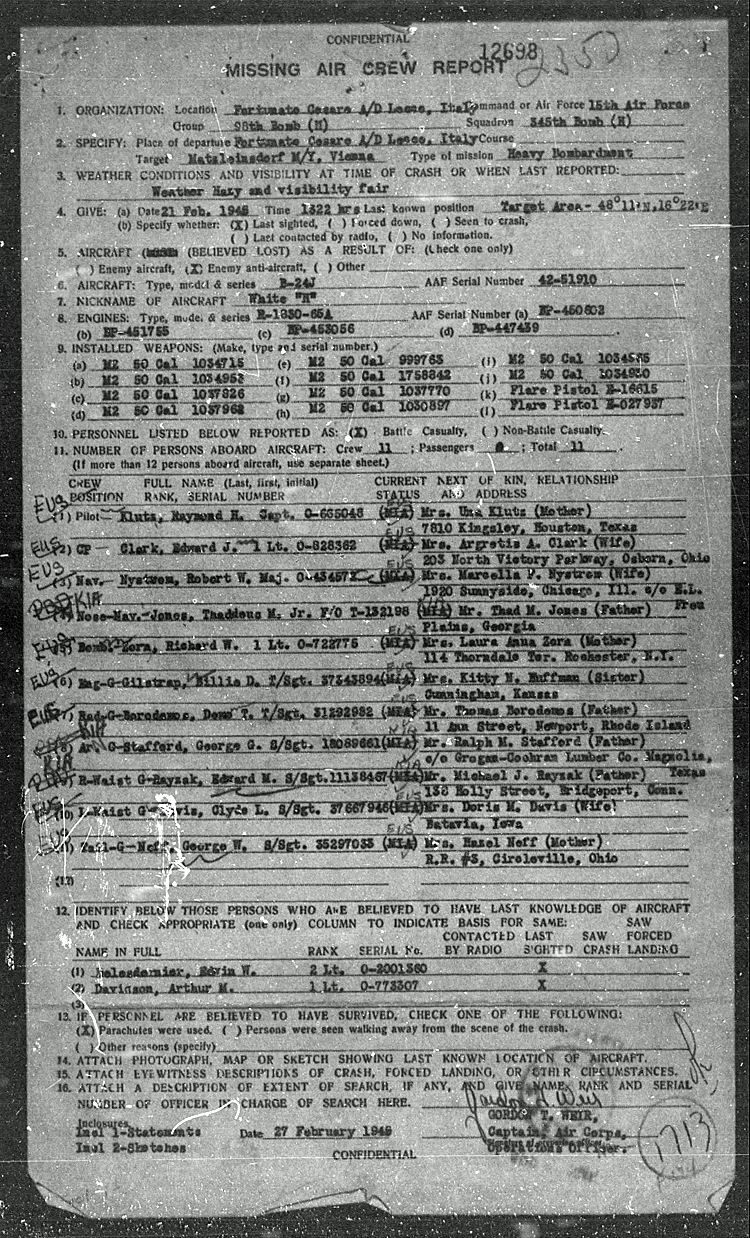 CONFIDENTIAL
12698 2350
MISSING AIR CREW REPORT
1. ORGANIZATION: Location Fortunato Cesare A/D Lecce, Italy Command or Air Force 15th Air Force
Group 98th Bomb (H) Squadron 345th Bomb (H)
2. SPECIFY: Place of departure Fortunato Cesare A/D Lecce, Italy Course
Target Matzleinsdorf M/Y, Vienna Type of mission Heavy Bombardment
3. WEATHER CONDITIONS AND VISIBILITY AT TIME OF CRASH OR WHEN LAST REPORTED:
Weather Hazy and visibility fair
4. GIVE: (a) Date 21 Feb. 1945 Time 1322 hrs Last known position Target Area- 48°11'N, 16°22'E
(b) Specify whether: (X) Last sighted, ( ) Forced down, ( ) Seen to crash,
( ) Last contacted by radio, ( ) No information.
5. AIRCRAFT (BELIEVED LOST) AS A RESULT OF: (Check one only)
( ) Enemy aircraft, (X) Enemy anti-aircraft, ( ) Other
6. AIRCRAFT: Type, model & series B-24J AAF Serial Number 42-51910
7. NICKNAME OF AIRCRAFT White "H"
8. ENGINES: Type, mode. & series R-1830-65A AAF Serial Number (a) BP-450602
(b) BP-451755 (c) BP-453056 (d) BP-447439
9. INSTALLED WEAPONS: (Make, type and serial number.)
(a) M2 50 Cal 1034715 (e) M2 50 Cal 999763 (i) M2 50 Cal
(b) M2 50 Cal 1034953 (f) M2 50 Cal 1758842 (j) M2 50 Cal 1034930
(c) M2 50 Cal 1037826 (g) M2 50 Cal 1037770 (k) Flare Pistol E-16615
(d) M2 50 Cal 1037962 (h) M2 50 Cal 1030897 (l) Flare Pistol E-027937
10. PERSONNEL LISTED BELOW REPORTED AS: (X) Battle Casualty, ( ) Non-Battle Casualty
11. NUMBER OF PERSONS ABOARD AIRCRAFT: Crew 11 ; Passengers 0 ; Total 11
(If more than 12 persons aboard aircraft, use separate sheet.)
CREW FULL NAME (Last, first, initial) CURRENT NEXT OF KIN, RELATIONSHIP
POSITION RANK, SERIAL NUMBER STATUS AND ADDRESS
EUS (1) Pilot Klutz, Raymond H. Capt. O-665048 (MIA) Mrs. Una Klutz (Mother)
EUS 7810 Kingsley, Houston, Texas
EUS (2) CP - Clark, Edward J. 1 Lt. O-828362 (MIA) Mrs. Argretis A. Clark (Wife)
EUS 203 North Victory Parkway, Osborn, Ohio
EUS (3) Nav. Nystrom, Robert W. Maj. (MIA) Mrs. Marcella P. Nystrom (Wife)
1920 Sunnyside, Chicago, Ill. c/o E.L. Freu
KIA Nose-Nav.-Jones, Thaddeus M. Jr. F/O T-132198 (MIA) Mr. Thad M. Jones (Father)
EUS Plains, Georgia
(5) Bomb. Zorn, Richard W. 1 Lt. O-722775 (MIA) Mrs. Laura Anna Zorn (Mother)
EUS 114 Thorndale Ter. Rochester, N.Y.
EUS (6) Eng-G-Gilstrap, Billie D. T/Sgt. 37343894 (MIA) Mrs. Kitty N. Huffman (Sister)
EUS Cunningham, Kansas
EUS (7) Rad-G-Borodemos, T. T/Sgt. 31292982 (MIA) Mr. Thomas Borodemos (Father)
KIA 11 Ann Street, Newport, Rhode Island
(8) G-Stafford, George G. S/Sgt. 18089661 (MIA) Mr. Ralph M. Stafford (Father)
KIA c/o Grogan-Cochran Lumber Co. Magnolia, Texas
R-Waist G-Rayzak, Edward M. S/Sgt. 11138467 (MIA) Mr. Michael J. Rayzak (Father)
EUS 136 Holly Street, Bridgeport, Conn.
(10) L-Waist G-Davis, Clyde L. S/Sgt. 37667946 (MIA) Mrs. Doris M. Davis (Wife)
EUS Batavia, Iowa
Tail-G-Neff, George W. S/Sgt. 35297033 (MIA) Mrs. Hazel Neff (Mother)
R.R. #3, Circleville, Ohio
(12)
12. IDENTIFY BELOW THOSE PERSONS WHO ARE BELIEVED TO HAVE LAST KNOWLEDGE OF AIRCRAFT
AND CHECK APPROPRIATE (one only) COLUMN TO INDICATE BASIS FOR SAME: SAW
CONTACTED LAST SAW FORCED
NAME IN FULL RANK SERIAL No. BY RADIO SIGHTED CRASH LANDING
(1) Edwin W. 2 Lt. O-2001360 X
(2) Davidson, Arthur M. 1 Lt. O-773307 X
(3)
13. IF PERSONNEL ARE BELIEVED TO HAVE SURVIVED, CHECK ONE OF THE FOLLOWING:
(X) Parachutes were used. ( ) Persons were seen walking away from the scene of the crash.
( ) Other reasons (specify)
14. ATTACH PHOTOGRAPH, MAP OR SKETCH SHOWING LAST KNOWN LOCATION OF AIRCRAFT.
15. ATTACH EYEWITNESS DESCRIPTIONS OF CRASH, FORCED LANDING, OR OTHER CIRCUMSTANCES.
16. ATTACH A DESCRIPTION OF EXTENT OF SEARCH, IF ANY, AND GIVE NAME, RANK AND SERIAL
NUMBER OF OFFICER IN CHARGE OF SEARCH HERE.
Gordon T. Weir
GORDON T. WEIR,
Inclosures
Incl 1-Statements Date 27 February 1945 Captain, Air Corps,
Incl 2-Sketches Operations Officer.
1713
CONFIDENTIAL